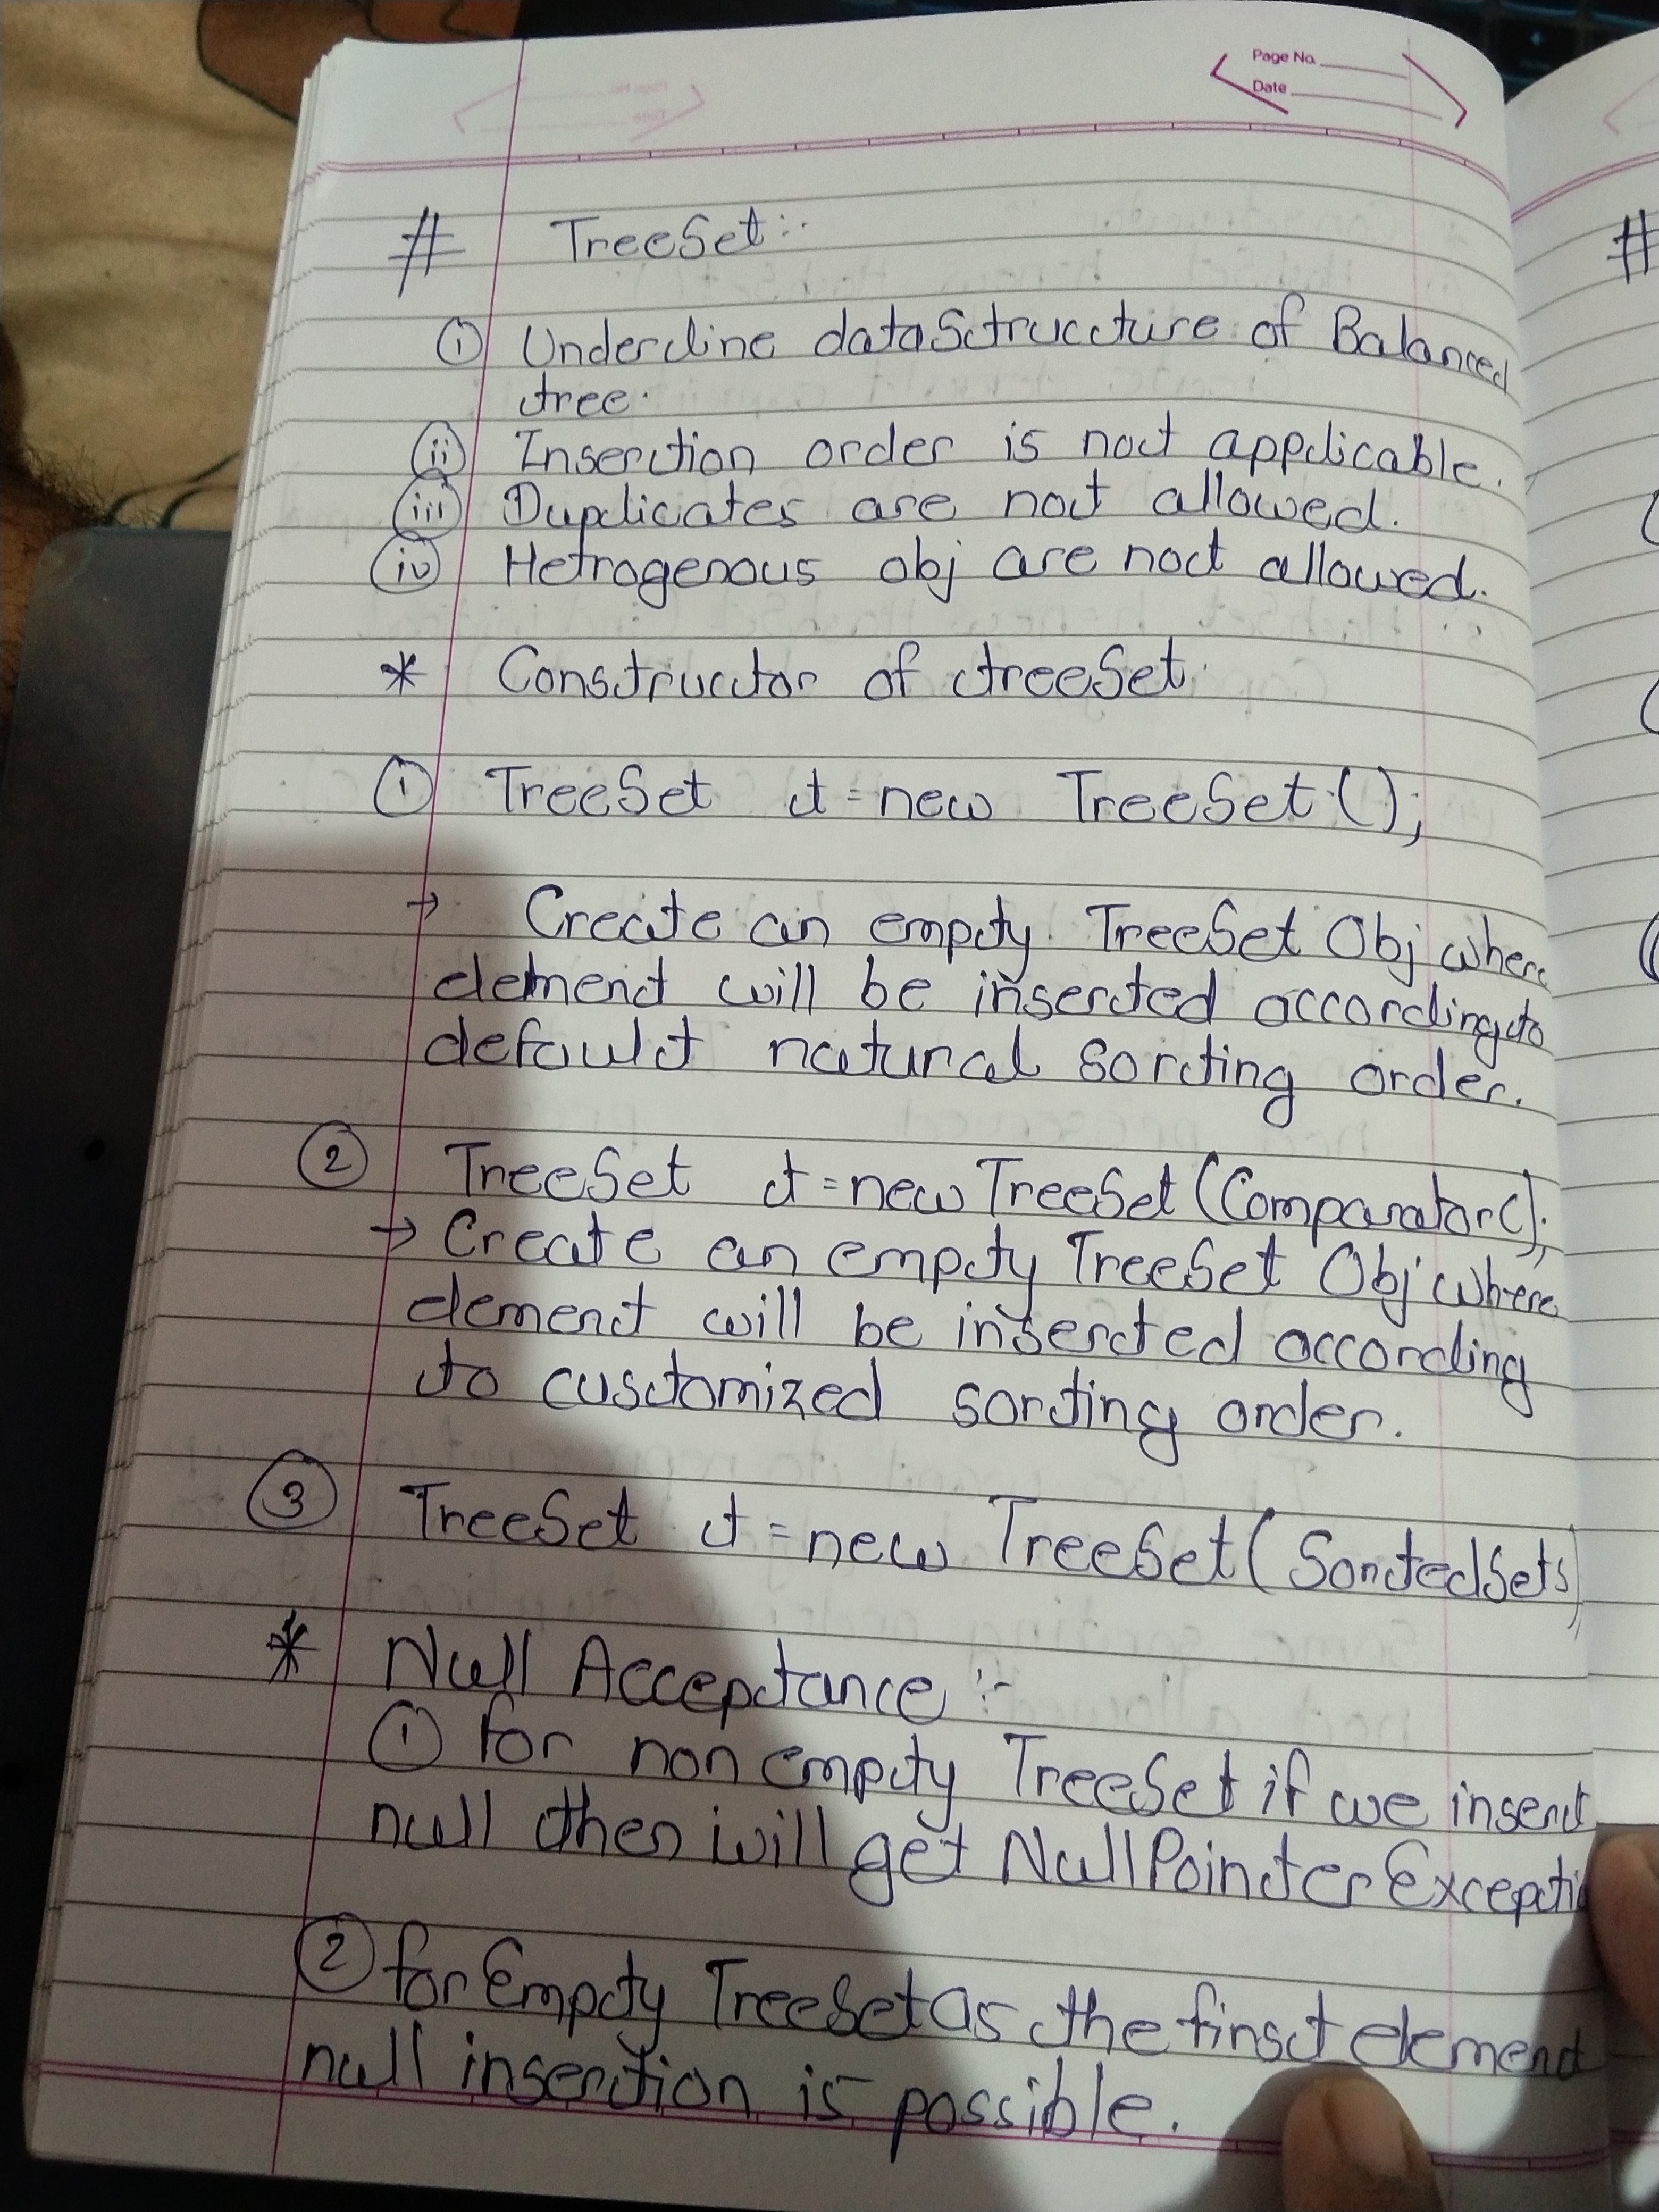 Page No.
Date
# TreeSet:-
(i) Underline dataStructure of Balanced
tree.
(ii) Insertion order is not applicable.
(iii) Duplicates are not allowed.
(iv) Hetrogenous obj are not allowed.
* Constructor of treeSet.
(1) TreeSet t = new TreeSet();
→ Create an empty TreeSet Obj where
element will be inserted according to
default natural sorting order.
(2) TreeSet t = new TreeSet(Comparator c);
→ Create an empty TreeSet Obj where
element will be inserted according
to customized sorting order.
(3) TreeSet t = new TreeSet(SortedSet s)
* Null Acceptance :-
(1) for non empty TreeSet if we insert
null then will get NullPointerExceptio
(2) for Empty TreeSet as the first element
null insertion is possible.